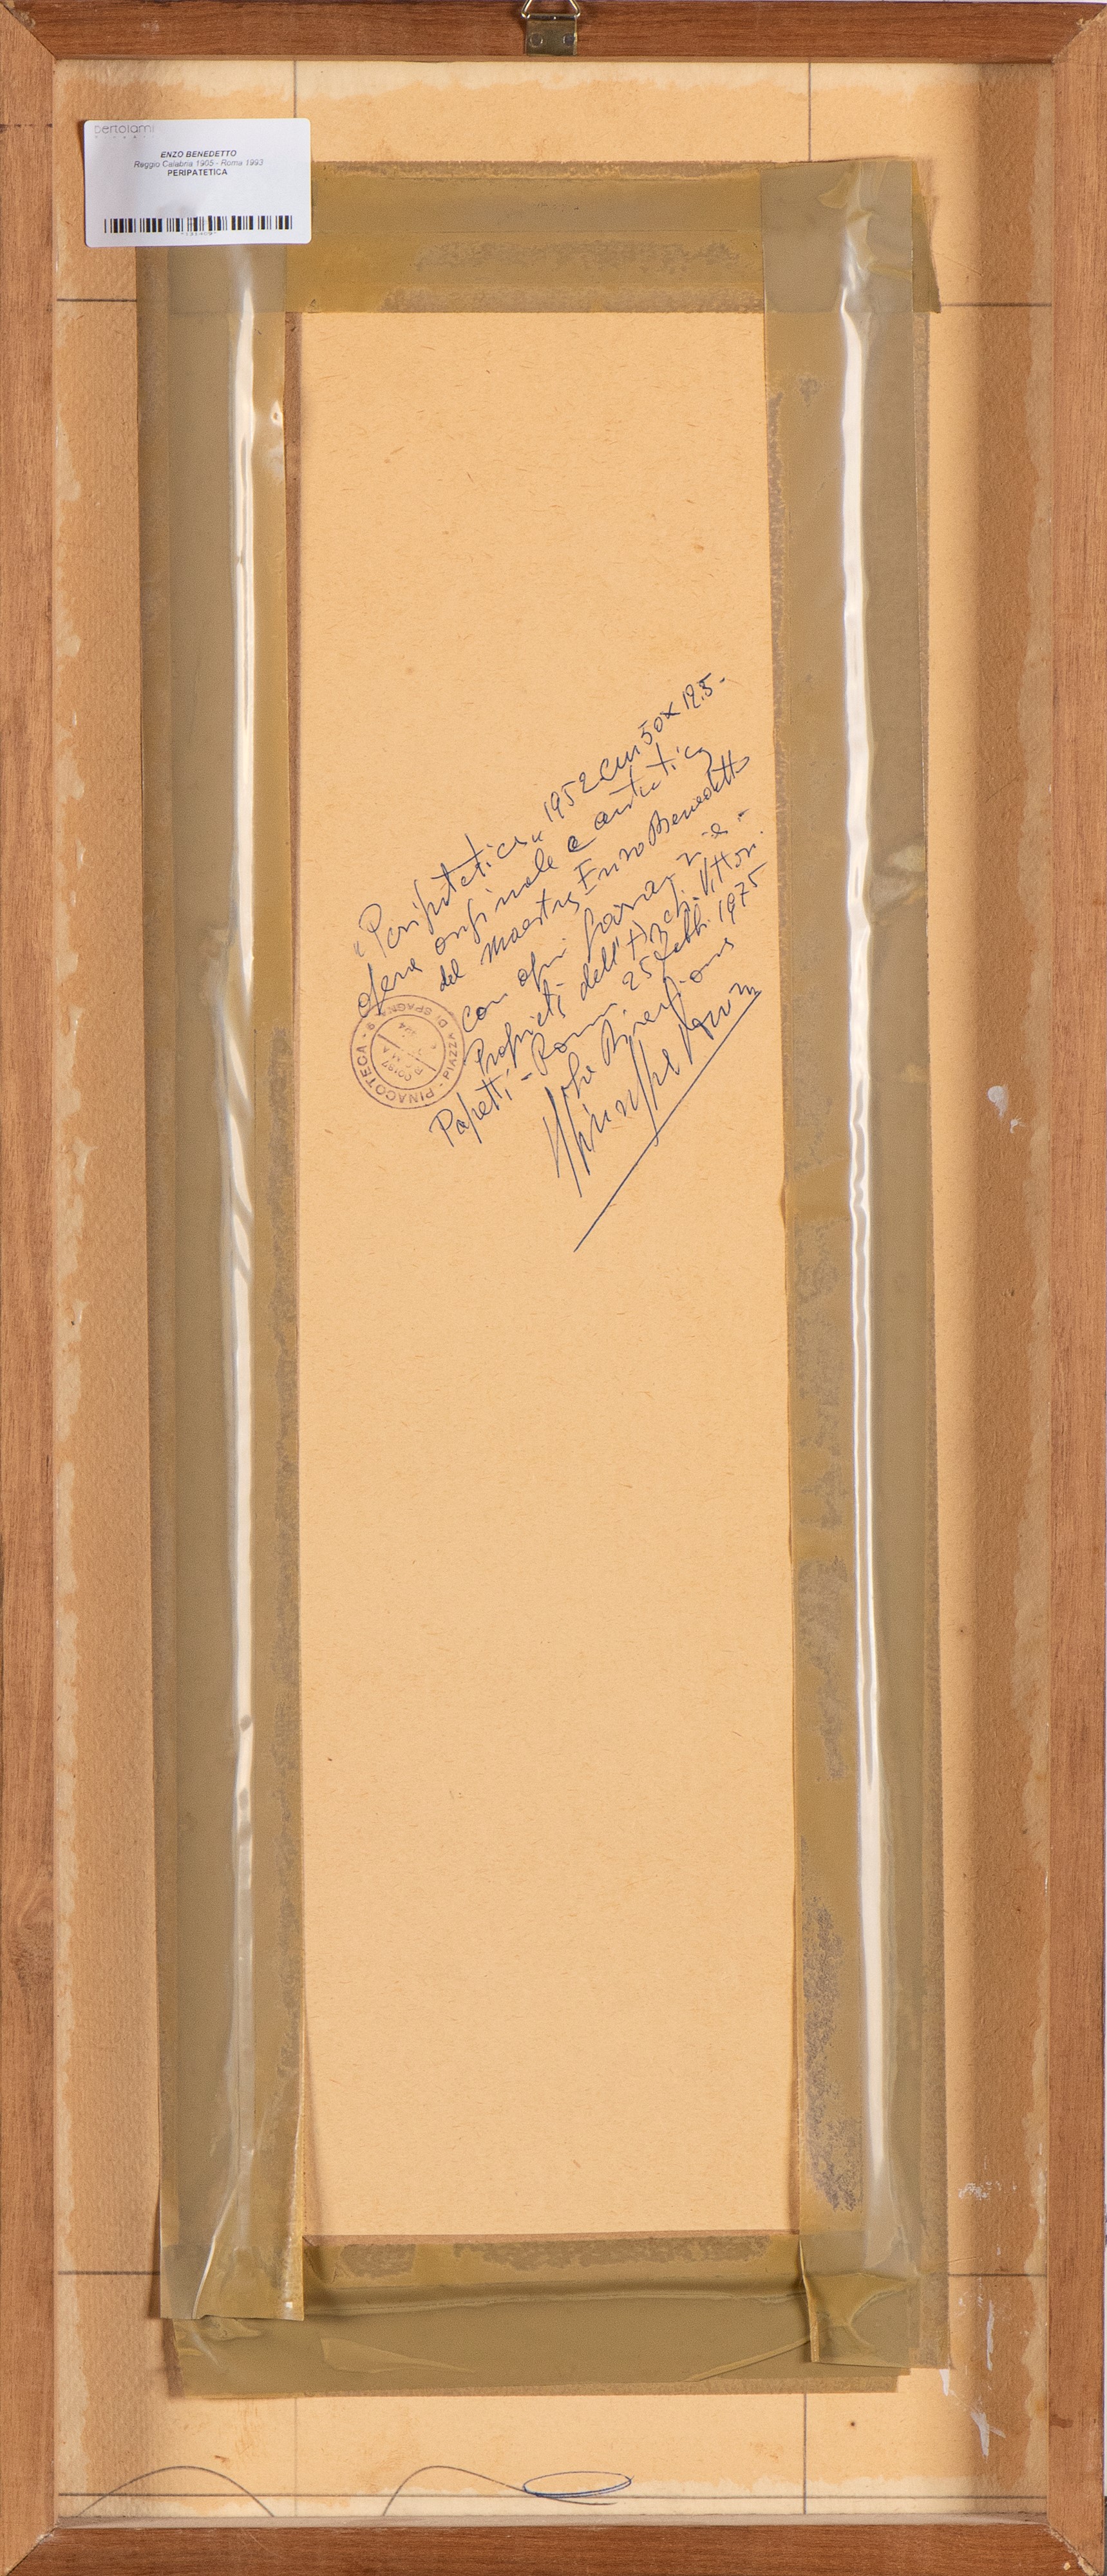 bertolami
ENZO BENEDETTO
Reggio Calabria 1905 - Roma 1993
PERIPATETICA
"Peripatetica" 1952 cm 50x12.5-
opera originale e autentica
del Maestro Enzo Benedetto
con ogni garanzie -
Proprietà dell'Arch. Vittor.
Papetti - Roma 25 febb. 1975
PINACOTECA - PIAZZA DI SPAGNA 9
00187